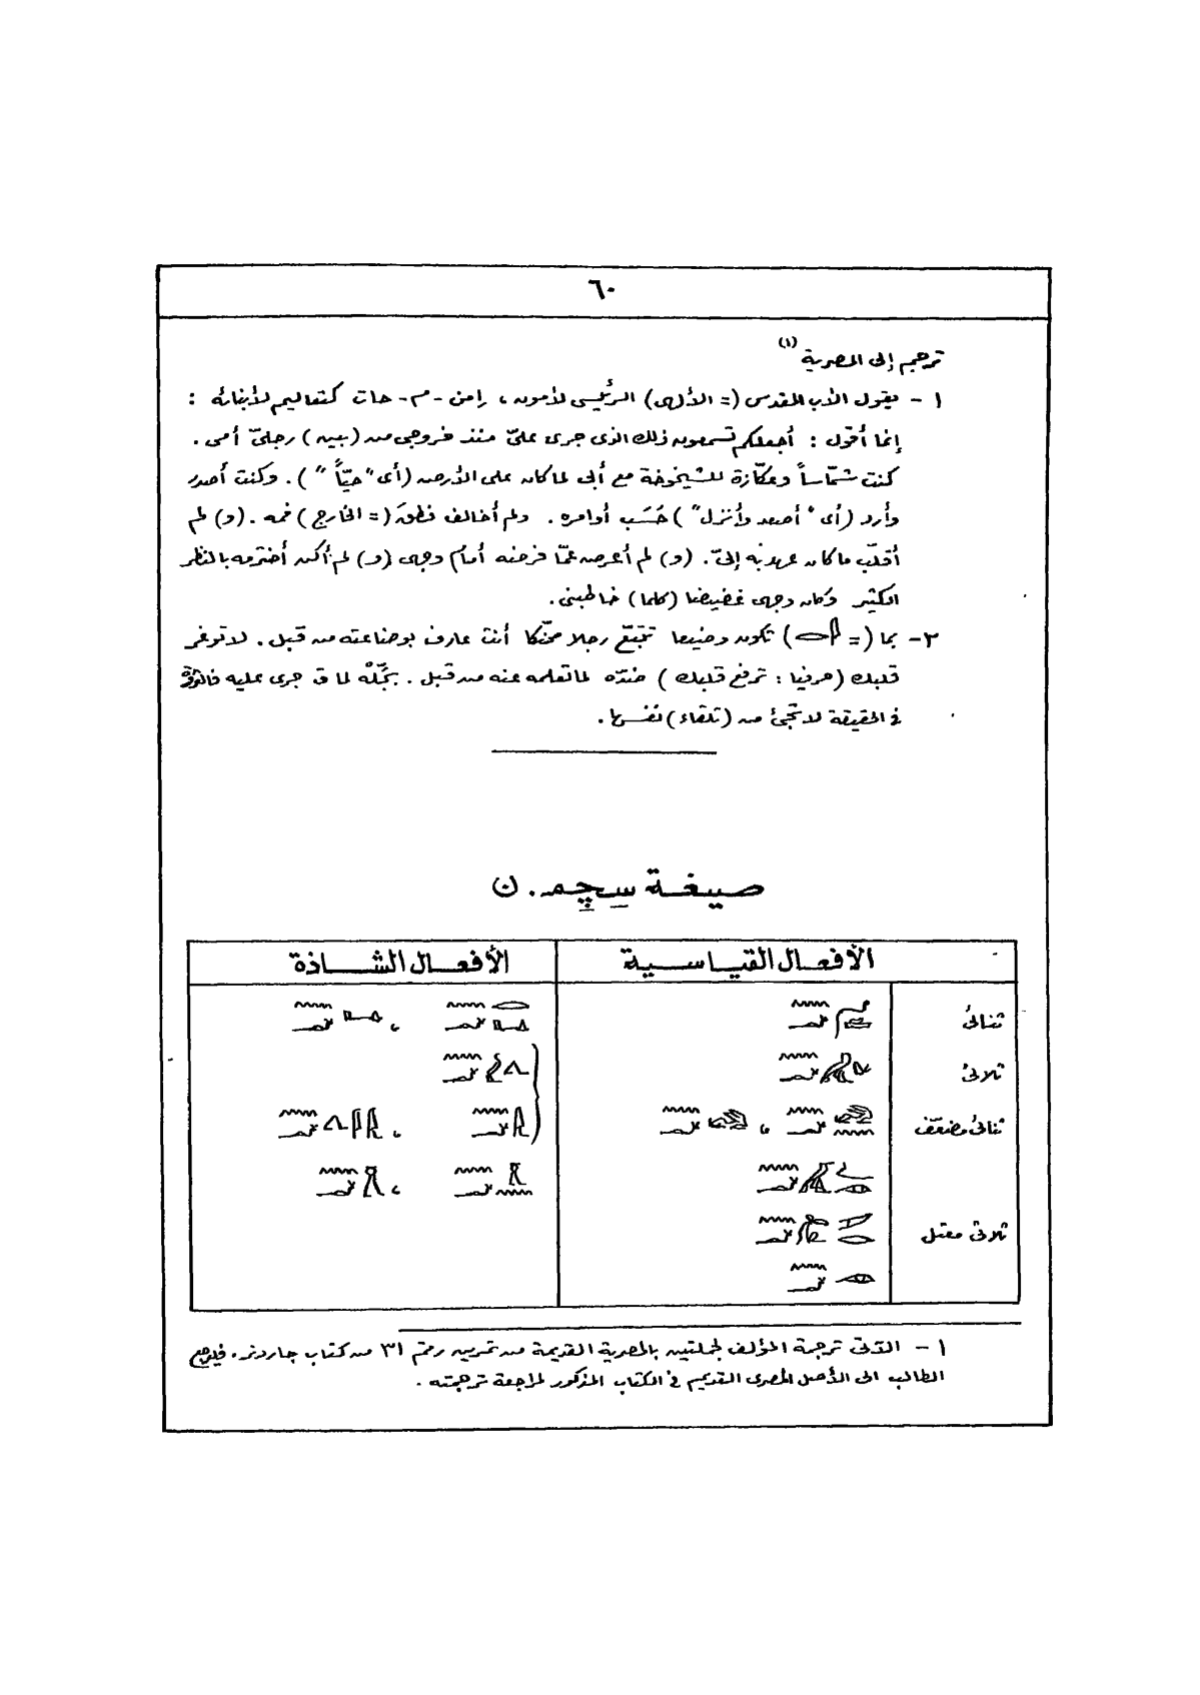 ٦٠
ترجم إلى المصرية (١)
١ - يقول الأب المقدس (= الألهى) الرئيسى لأمون، رامن - م - حات كتعاليم لأبنائه :
إنما أقول : أجعلكم تسمعون ذلك الذى جرى علىّ منذ خروجى من (بين) رجلىّ أمى .
كنت شمّاساً وعكّازة للشيخوخة مع أبى لما كان على الأرض (أى "حيّاً") . وكنت أصدر
وأرد (أى "أصعد وأنزل") حَسَب أوامره . ولم أخالف نطقَ (= الخارج) فمه . (و) لم
أقلّب ما كان عهد به إلىّ . (و) لم أعرض عمّا فرضه أمام وجهى (و) لم أكن أخترمه بالنظر
الكثير وكان وجهى غضيضا (كلما) خاطبنى .
٢ - بما (= ) تكون وضيعا تتبّع رجلا محنّكا أنت عارف بوضاعته من قبل . لا توغر
قلبك (حرفيا : ترفع قلبك) ضدّه لما تعلمه عنه من قبل . بجّله لما ق جرى عليه فالثروة
فى الحقيقة لا تجئ من (تلقاء) نفسها .
صيغة سِچِمـ . ن
الأفعال القياسية
الأفعال الشاذة
ثنائى
ثلاثى
ثنائى مضعّف
ثلاثى معتل
١ - الآتى ترجمة المؤلف لجملتين بالمصرية القديمة من تمرين رقم ٣١ من كتاب جاردنر . فليرجع
الطالب الى الأصل المصرى القديم فى الكتاب المذكور لمراجعة ترجمته .